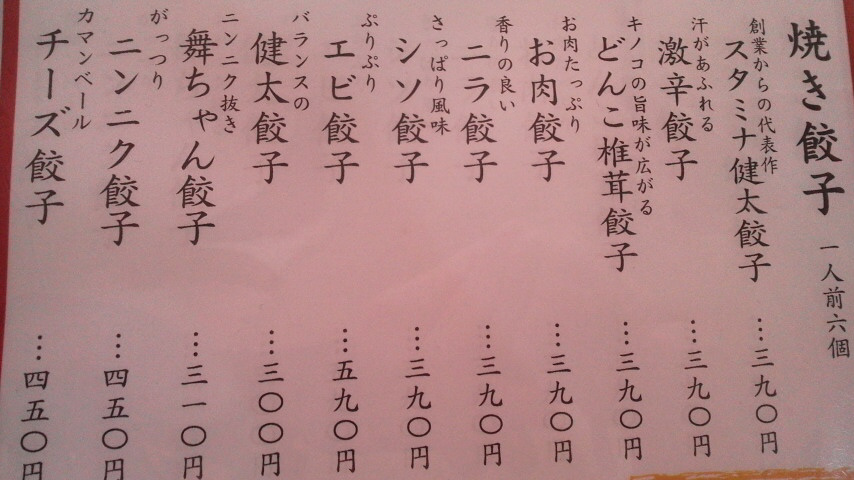 焼き餃子 一人前六個
創業からの代表作
スタミナ健太餃子 …三九〇円
汗があふれる
激辛餃子 …三九〇円
キノコの旨味が広がる
どんこ椎茸餃子 …三九〇円
お肉たっぷり
お肉餃子 …三九〇円
香りの良い
ニラ餃子 …三九〇円
さっぱり風味
シソ餃子 …三九〇円
ぷりぷり
エビ餃子 …五九〇円
バランスの
健太餃子 …三〇〇円
ニンニク抜き
舞ちゃん餃子 …三一〇円
がっつり
ニンニク餃子 …四五〇円
カマンベール
チーズ餃子 …四五〇円